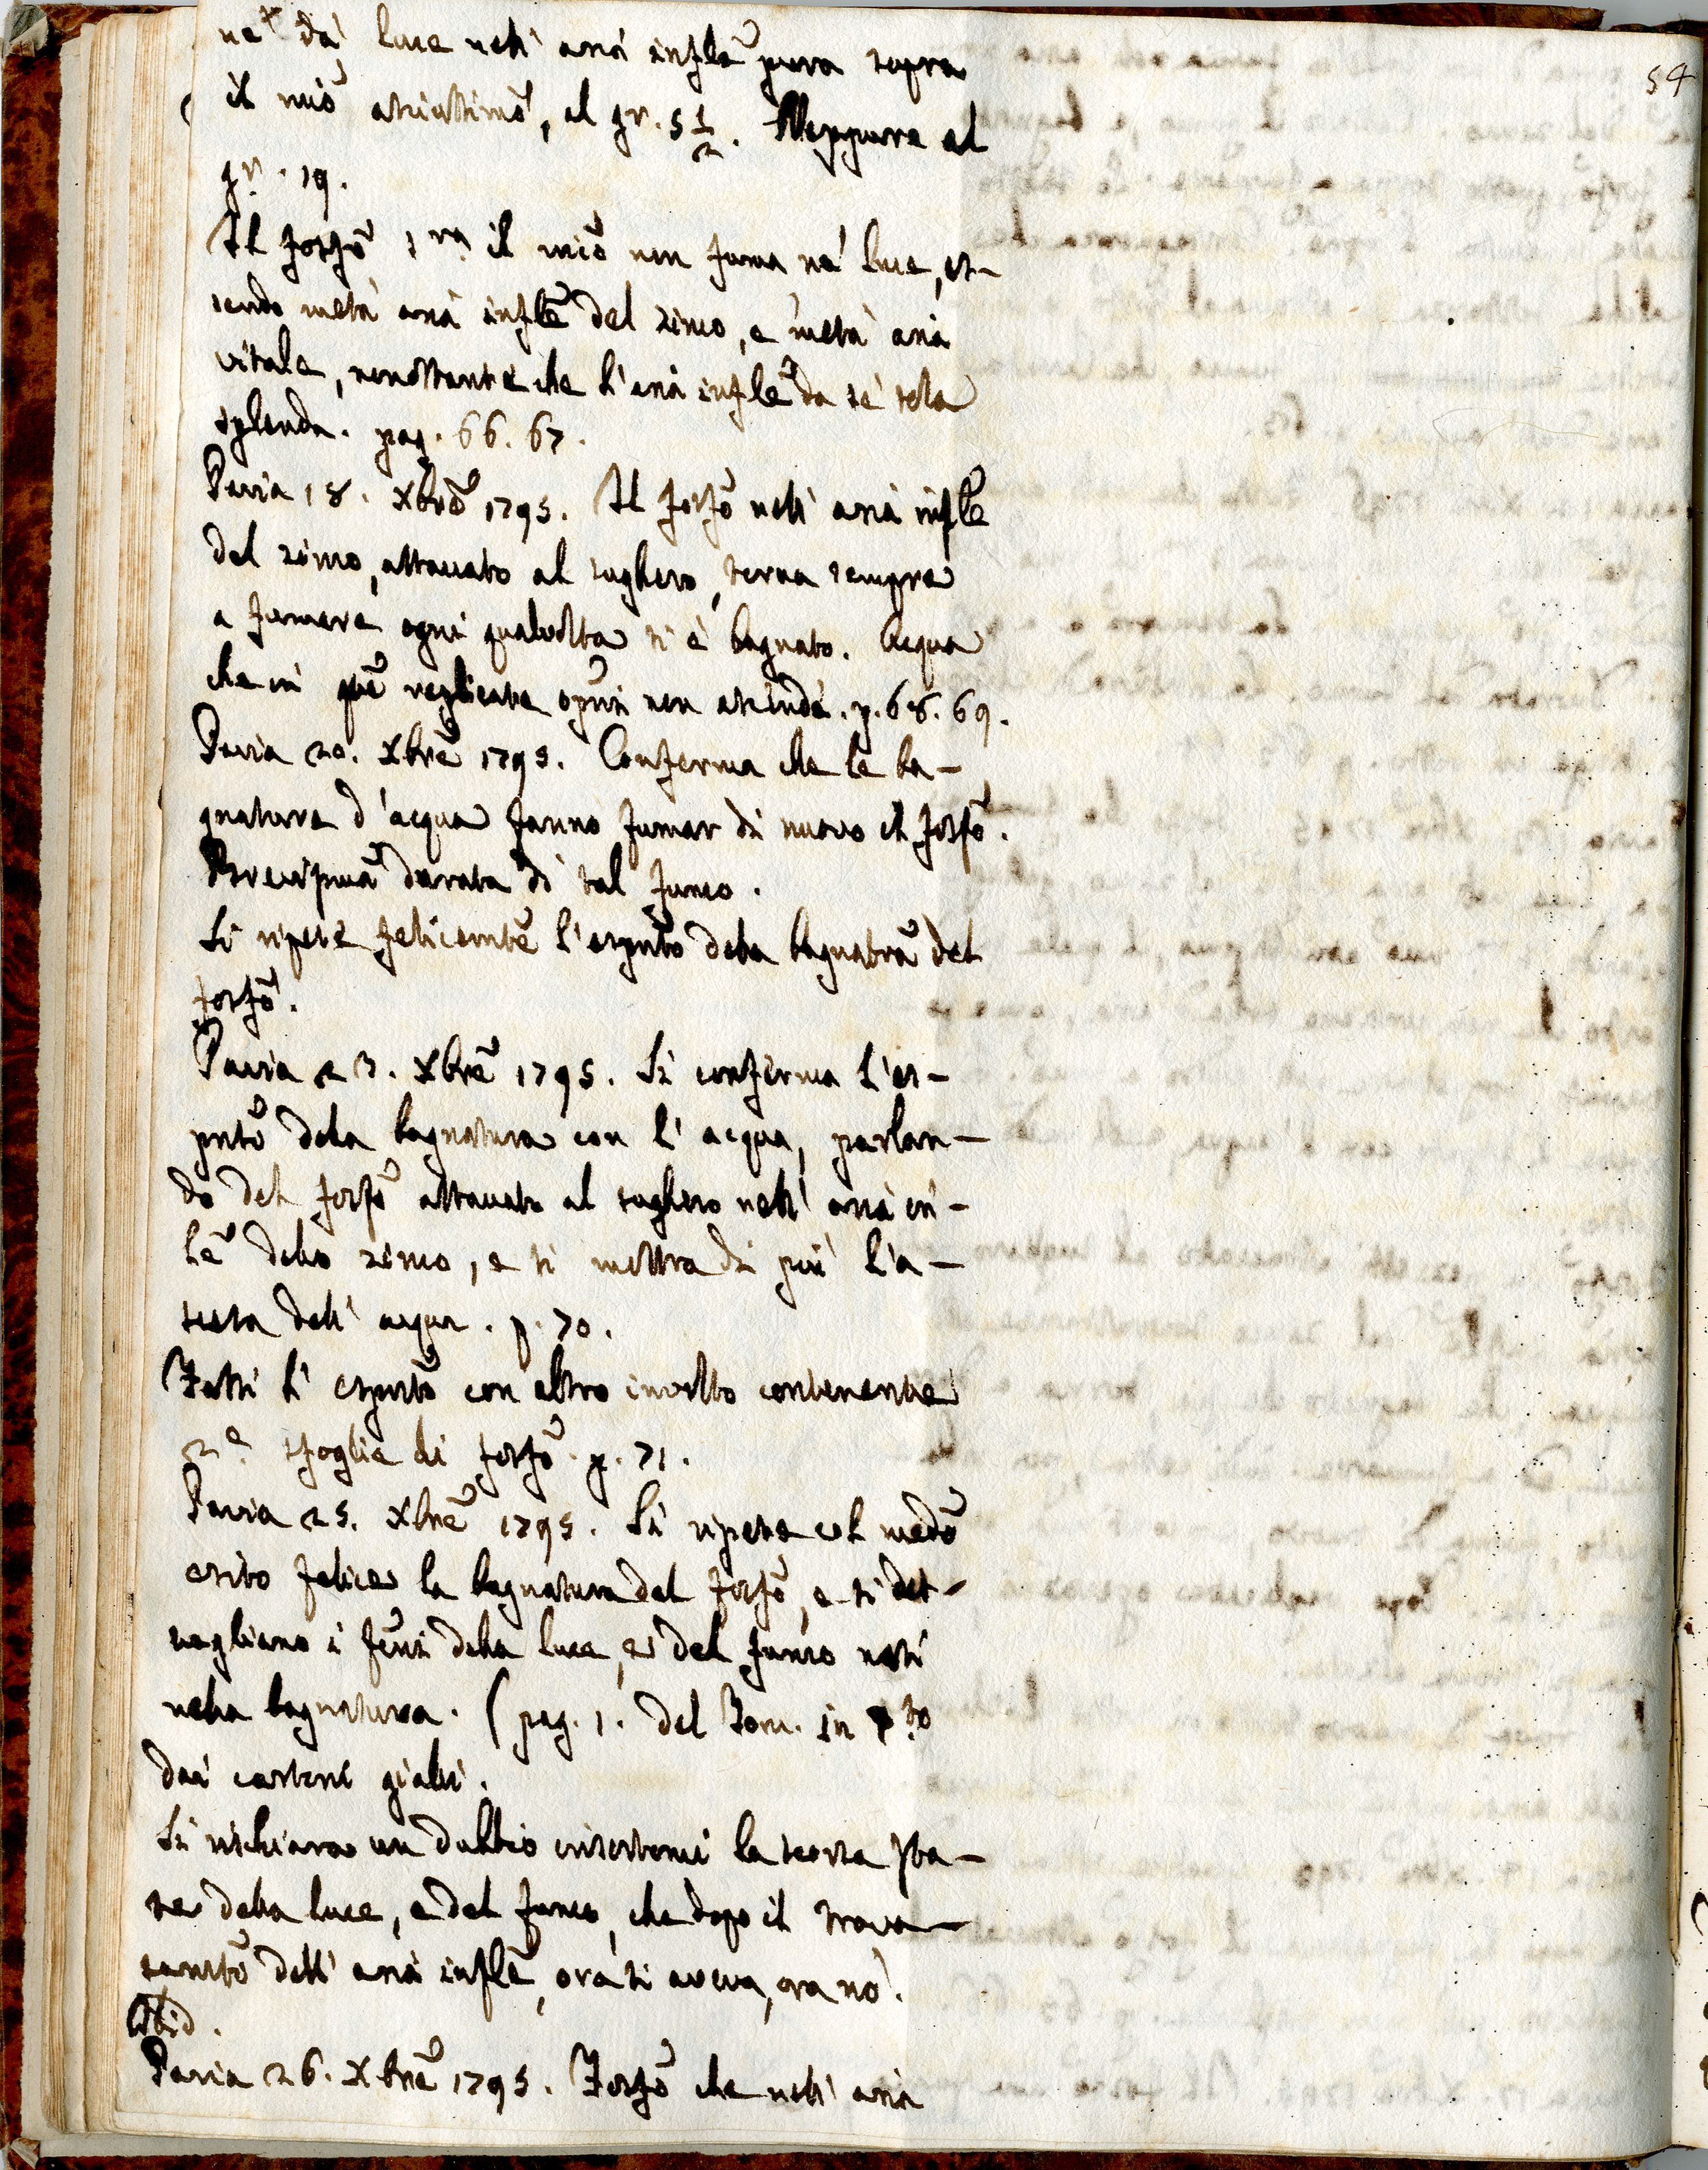 54
ne dà luce nell' aria infle pura sopra
il mio asciuttimo, al gr. 5 1/2. Neppure al
gr. 19.
Il fosfo 1ra il mio non fuma nè luce, es-
sendo metà aria infle del zinco, e metà aria
vitale, nonostante che l'aria infle da sè sola
splenda. pag. 66. 67.
Pavia 18. Xbre 1795. Il fosfo nell' aria infle
del zinco, attaccato al sughero, torna sempre
a fumare ogni qualvolta si è bagnato. Acqua
che in replicate non ascende. p. 68. 69.
Pavia 20. Xbre 1795. Conferma che le ba-
gnature d'acqua fanno fumar di nuovo il fosfo.
durata di tal fumo.
Si ripete felicemte l'esprito della bagnatra del
fosfo.
Pavia 23. Xbre 1795. Si conferma l'es-
prito della bagnatura con l' acqua, parlan-
do del fosfo attaccato al sughero nell' aria in-
le dello zinco, e si mostra di più l'a-
scesa dell' acqua. p. 70.
Fassi l' esprito con altro involto contenente
2e sfoglie di fosfo. p. 71.
Pavia 25. Xbre 1795. Si ripete col medo
esito felice la bagnatura del fosfo, e si det-
tagliano i feni della luce, e del fumo nati
nella bagnatura. (pag. 1. del Tom. in
dai cartoni gialli.
Si rischiara un dubbio la scorsa
te della luce, e del fumo, che dopo il trava-
samto dell' aria infle, ora si aveva, ora nò.
Ibid.
Pavia 26. Xbre 1795. Fosfo che nell' aria